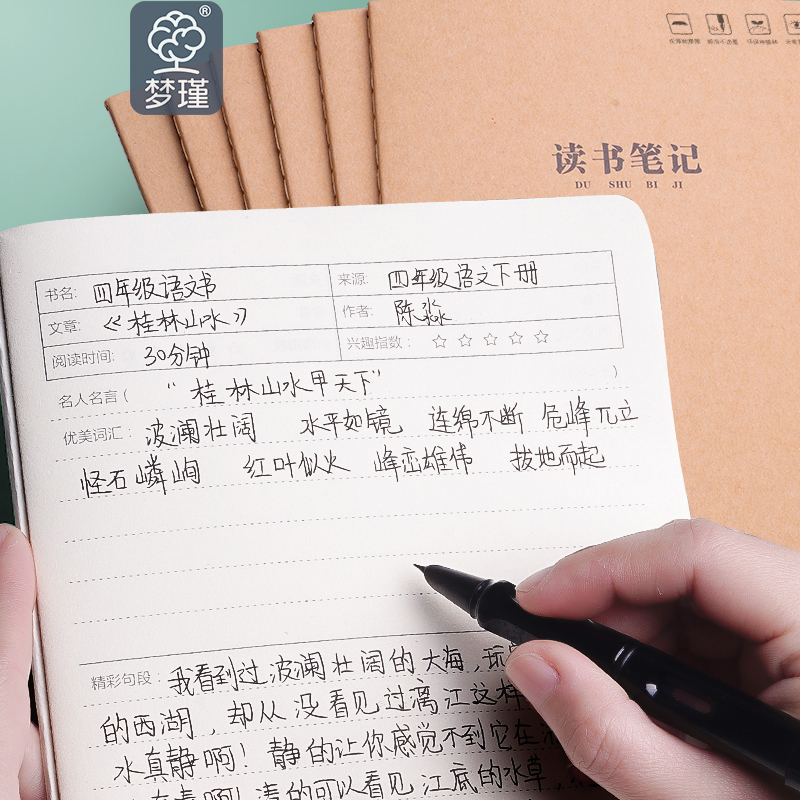 梦瑾®
读书笔记
DU SHU BI JI
书名: 四年级语文书 来源: 四年级语文下册
文章: 《桂林山水》 作者: 陈淼
阅读时间: 30分钟 兴趣指数: ☆ ☆ ☆ ☆ ☆
名人名言( “桂林山水甲天下” )
优美词汇: 波澜壮阔 水平如镜 连绵不断 危峰兀立
怪石嶙峋 红叶似火 峰峦雄伟 拔地而起
精彩句段: 我看到过波澜壮阔的大海,玩
的西湖,却从没看见过漓江这样
水真静啊!静的让你感觉不到它在
啊!清的可以看见江底的水草,